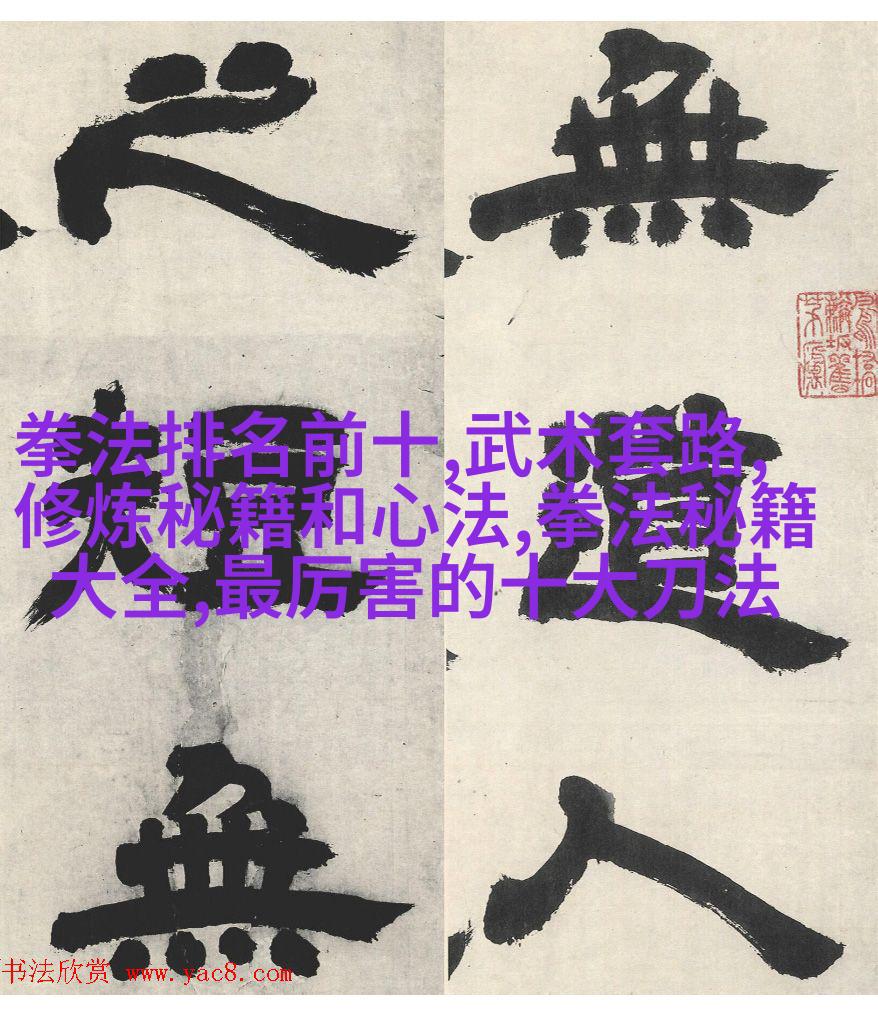 無道人
之短無
拳法排名前十,武术套路,
修炼秘籍和心法,拳法秘籍
大全,最厉害的十大刀法
书法欣赏 www.yac8.com